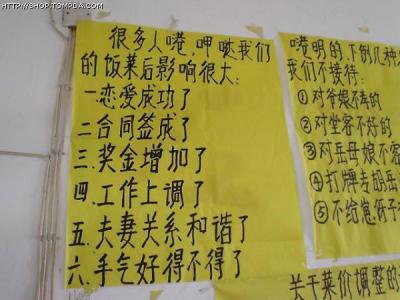 HTTP://SHOP.TOMPDA.COM
很多人喽,呷哒我们
的饭菜后影响很大:
一.恋爱成功了
二.合同签成了
三.奖金增加了
四.工作上调了
五.夫妻关系和谐了
六.手气好得不得了
喽明的.下例几种
我们不接待:
①对爷娘不孝的
②对堂客不好的
③对岳母娘不客
④打牌专胡岳
⑤不给崽伢子
关于菜价调整的